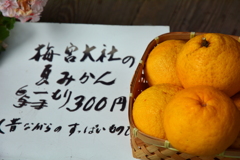 梅宮大社の
夏みかん
一もり300円
昔ながらのすっぱいもの